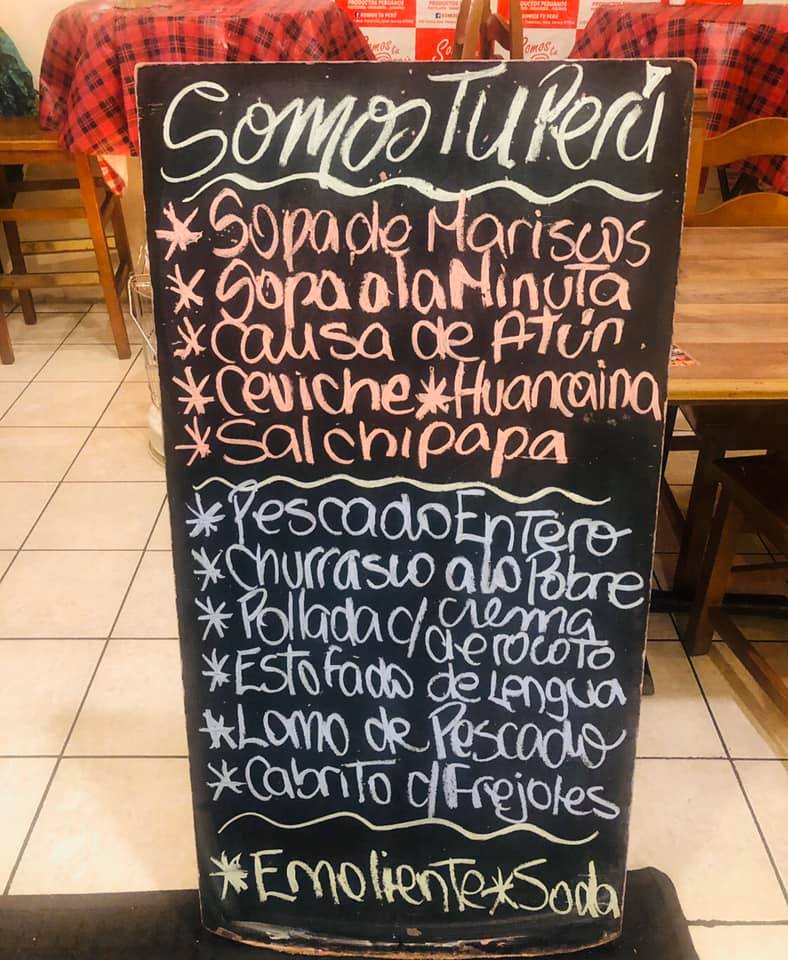 PRODUCTOS PERUANOS
SOMOS TU PERÚ
Somos tu
Somos Tu Perú
* Sopa de Mariscos
* Sopa a la Minuta
* Causa de Atún
* Ceviche * Huancaina
* Salchipapa
* Pescado Entero
* Churrasco a lo Pobre
* Pollada c/ crema
de rocoto
* Estofado de Lengua
* Lomo de Pescado
* Cabrito c/ Frejoles
* Emoliente * Soda